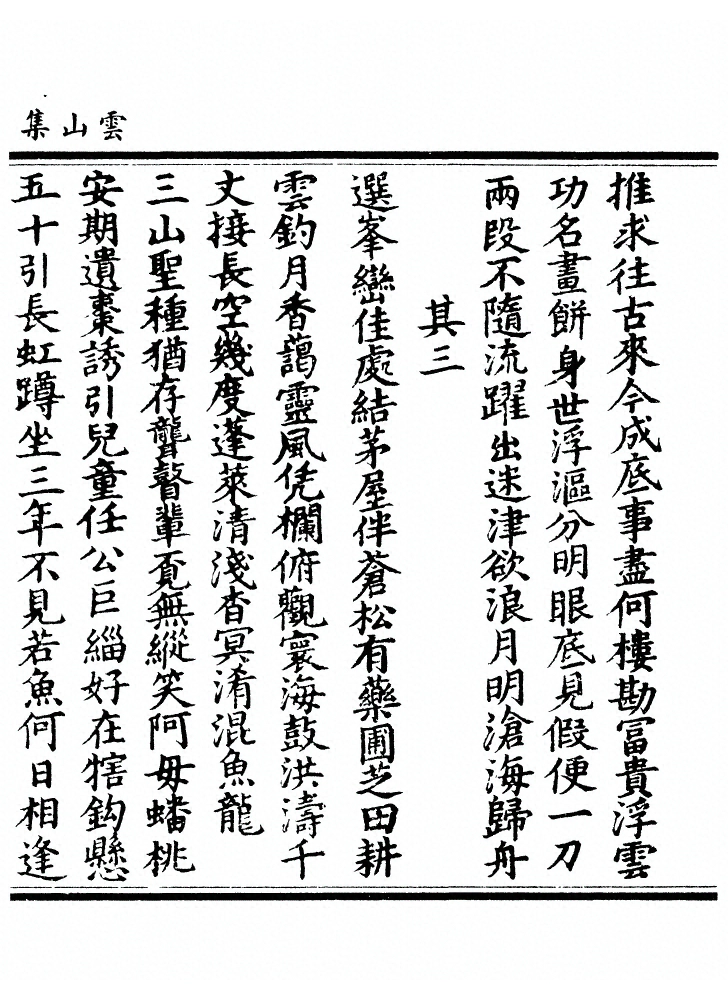 雲山集
推求往古來今成底事盡何樓勘冨貴浮雲
功名畫餅身世浮漚分明眼底見假便一刀
兩段不隨流躍出迷津欲浪月明滄海歸舟
其三
選峯巒佳處結茅屋伴蒼松有藥圃芝田耕
雲釣月香藹靈風凭欄俯觀寰海鼓洪濤千
丈接長空幾度蓬萊清淺杳冥淆混魚龍
三山聖種猶存聾瞽輩覔無縱笑阿毋蟠桃
安期遺棗誘引兒童任公巨緇好在犗鈎懸
五十引長虹蹲坐三年不見若魚何日相逢